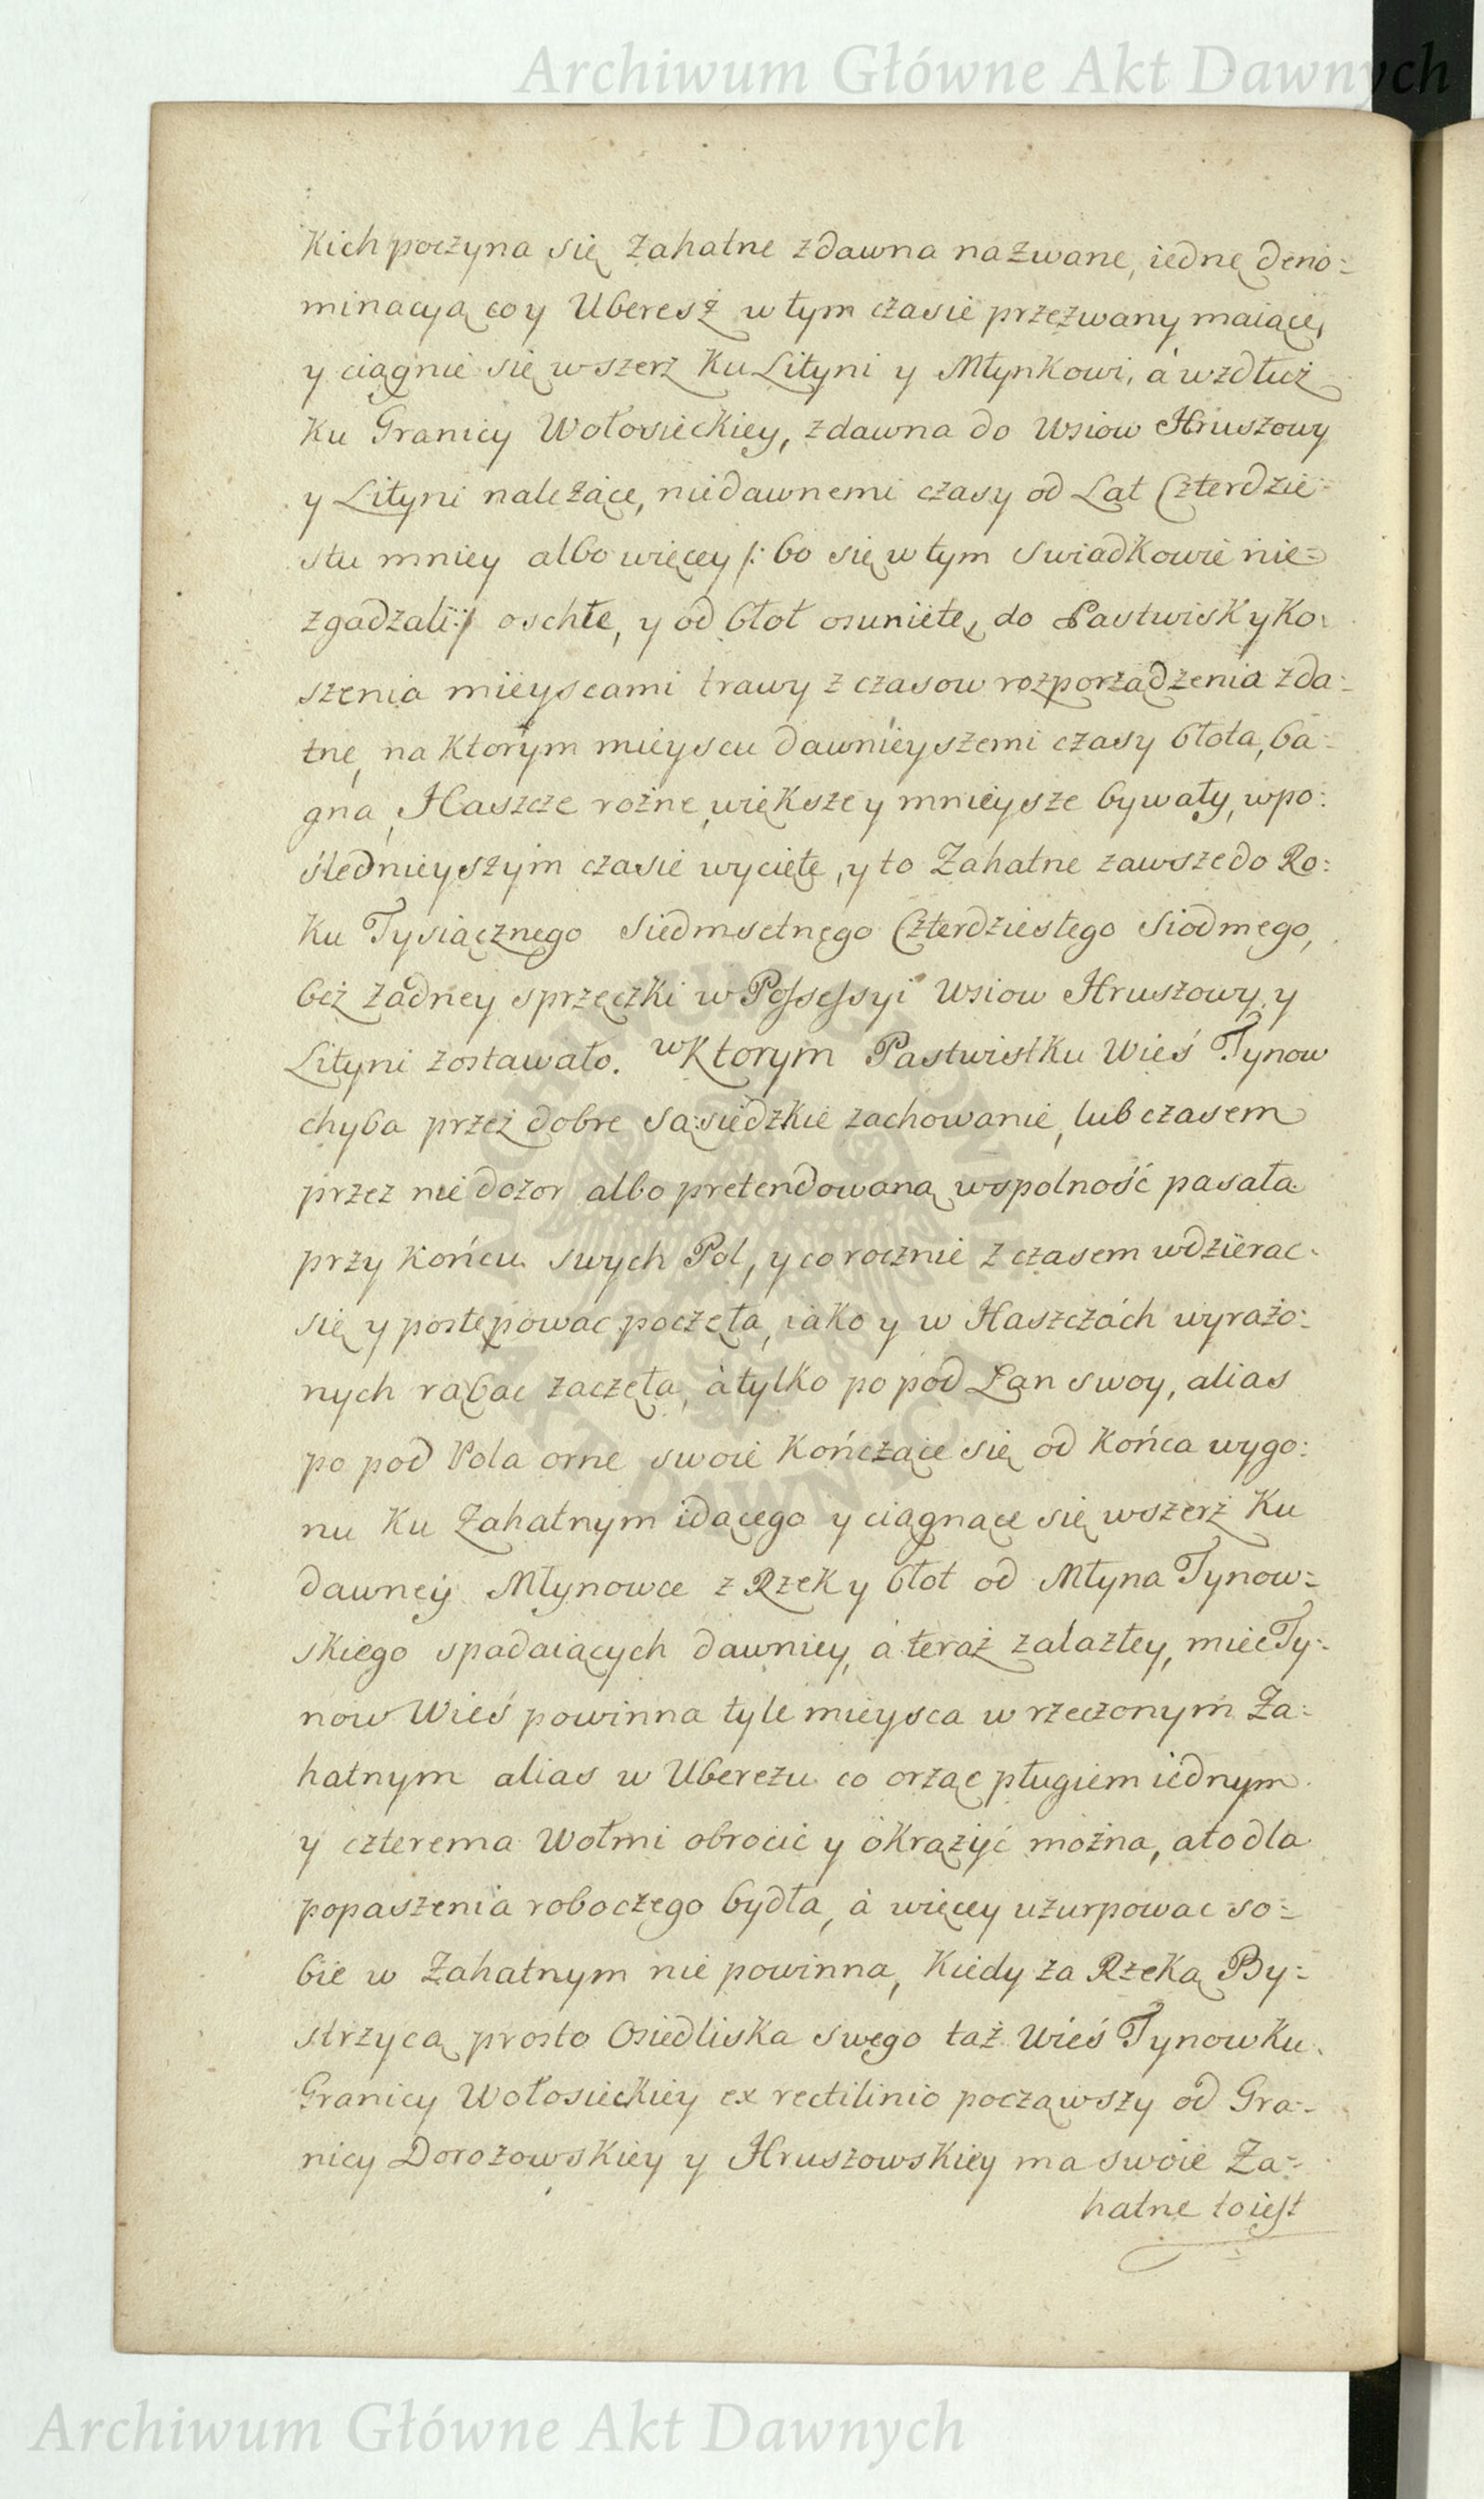 Archiwum Główne Akt Dawnych
kich poczyna się Zahatne zdawna nazwane, iednę deno=
minacyą co y Uberesz w tym czasie przezwany maiące,
y ciągnie się wszerz ku Lityni y Młynkowi, à wzdłuż
ku Granicy Wołosieckiey, zdawna do Wsiow Hruszowy
y Lityni należące, niedawnemi czasy od Lat Czterdzie=
stu mniey albo więcey /: bo się w tym swiadkowie nie=
zgadzali :/ oschłe, y od błot osunięte, do Pastwisk y Ko=
szenia mieyscami trawy z czasow rozporządzenia zda=
tne, na ktorym mieyscu dawnieyszemi czasy błota, ba=
gna, Haszcze rożne, większe y mnieysze bywały, w po=
ślednieyszym czasie wycięte, y to Zahatne zawsze do Ro=
ku Tysiącznego Siedmsetnego Czterdziestego Siodmego,
bez żadney sprzeczki w Possessyi Wsiow Hruszowy y
Lityni zostawało. w Ktorym Pastwisku Wieś Tynow
chyba przez dobre sąsiedzkie zachowanie, lub czasem
przez nie dozor albo pretendowaną wspolność pasała
przy końcu swych Pol, y co rocznie z czasem wdzierac
się y postępowac poczęła, iako y w Haszczách wyrażo=
nych rąbac zaczęła, à tylko po pod Łan swoy, alias
po pod Pola orne swoie kończące się od końca wygo=
nu ku Zahatnym idącego y ciągnące się wszerz ku
dawney Młynowce z Rzek y błot od Młyna Tynow=
skiego spadaiących dawniey, à teraz zalazłey, miec Ty=
now Wieś powinna tyle mieysca w rzeczonym Za=
hatnym alias w Uberezu co orząc pługiem iednym
y czterema Wołmi obrocić y okrążyć można, a to dla
popaszenia roboczego bydła, à więcey uzurpowac so=
bie w Zahatnym nie powinna, kiedy za Rzeką By=
strzycą prosto Osiedliska swego taż Wieś Tynow ku
Granicy Wołosieckiey ex rectilinio począwszy od Gra=
nicy Dorozowskiey y Hruszowskiey ma swoie Za=
hatne to iest
Archiwum Główne Akt Dawnych